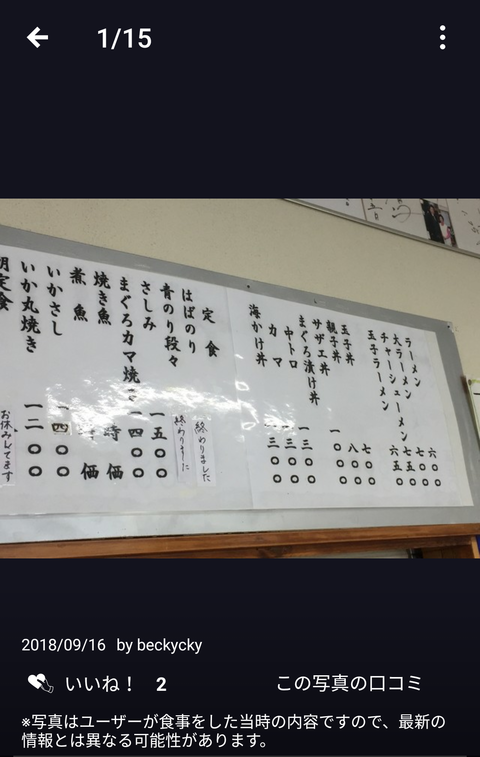 1/15
ラーメン 六〇〇
大ラーメン 七〇〇
チャーシューメン 七五〇
玉子ラーメン 六五〇
玉子丼 七〇〇
親子丼 八〇〇
サザエ丼 一〇〇〇
まぐろ漬け丼 一三〇〇
中トロ 一三〇〇
カマ 一三〇〇
海かけ丼
定食
はばのり 終わりました
青のり段々 終わりました
さしみ 一五〇〇
まぐろカマ焼き 一四〇〇
焼き魚 時価
煮魚 時価
いかさし 一四〇〇
いか丸焼き 一二〇〇
定食 お休みしてます
2018/09/16 by beckycky
いいね! 2
この写真の口コミ
※写真はユーザーが食事をした当時の内容ですので、最新の
情報とは異なる可能性があります。